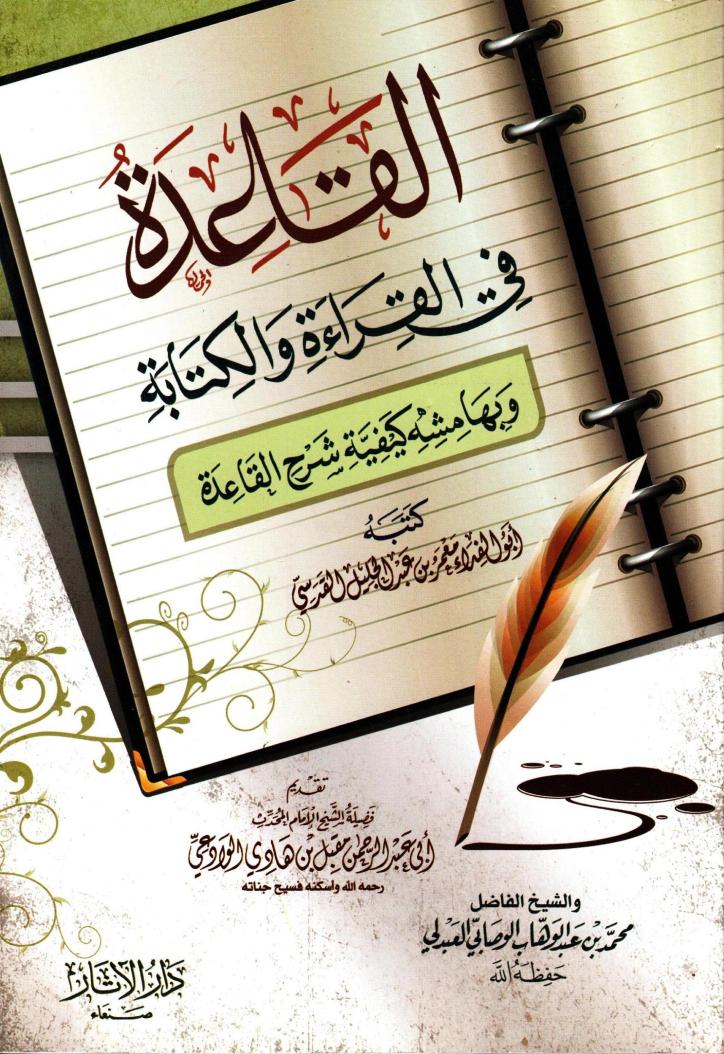 القَاعِدَةُ
فِي القِرَاءَةِ وَالكِتَابَةِ
وَبِهَامِشِهِ كَيْفِيَّة شَرْحِ القَاعِدَة
كَتَبَهُ
أبو الفداء معمر بن عبد الجليل القدسي
تقديم
فضيلة الشيخ الإمام المحدث
أبي عبد الرحمن مقبل بن هادي الوادعي
رحمه الله وأسكنه فسيح جناته
والشيخ الفاضل
محمد بن عبد الوهاب الوصابي العبدلي
حفظه الله
دار الآثار
صنعاء